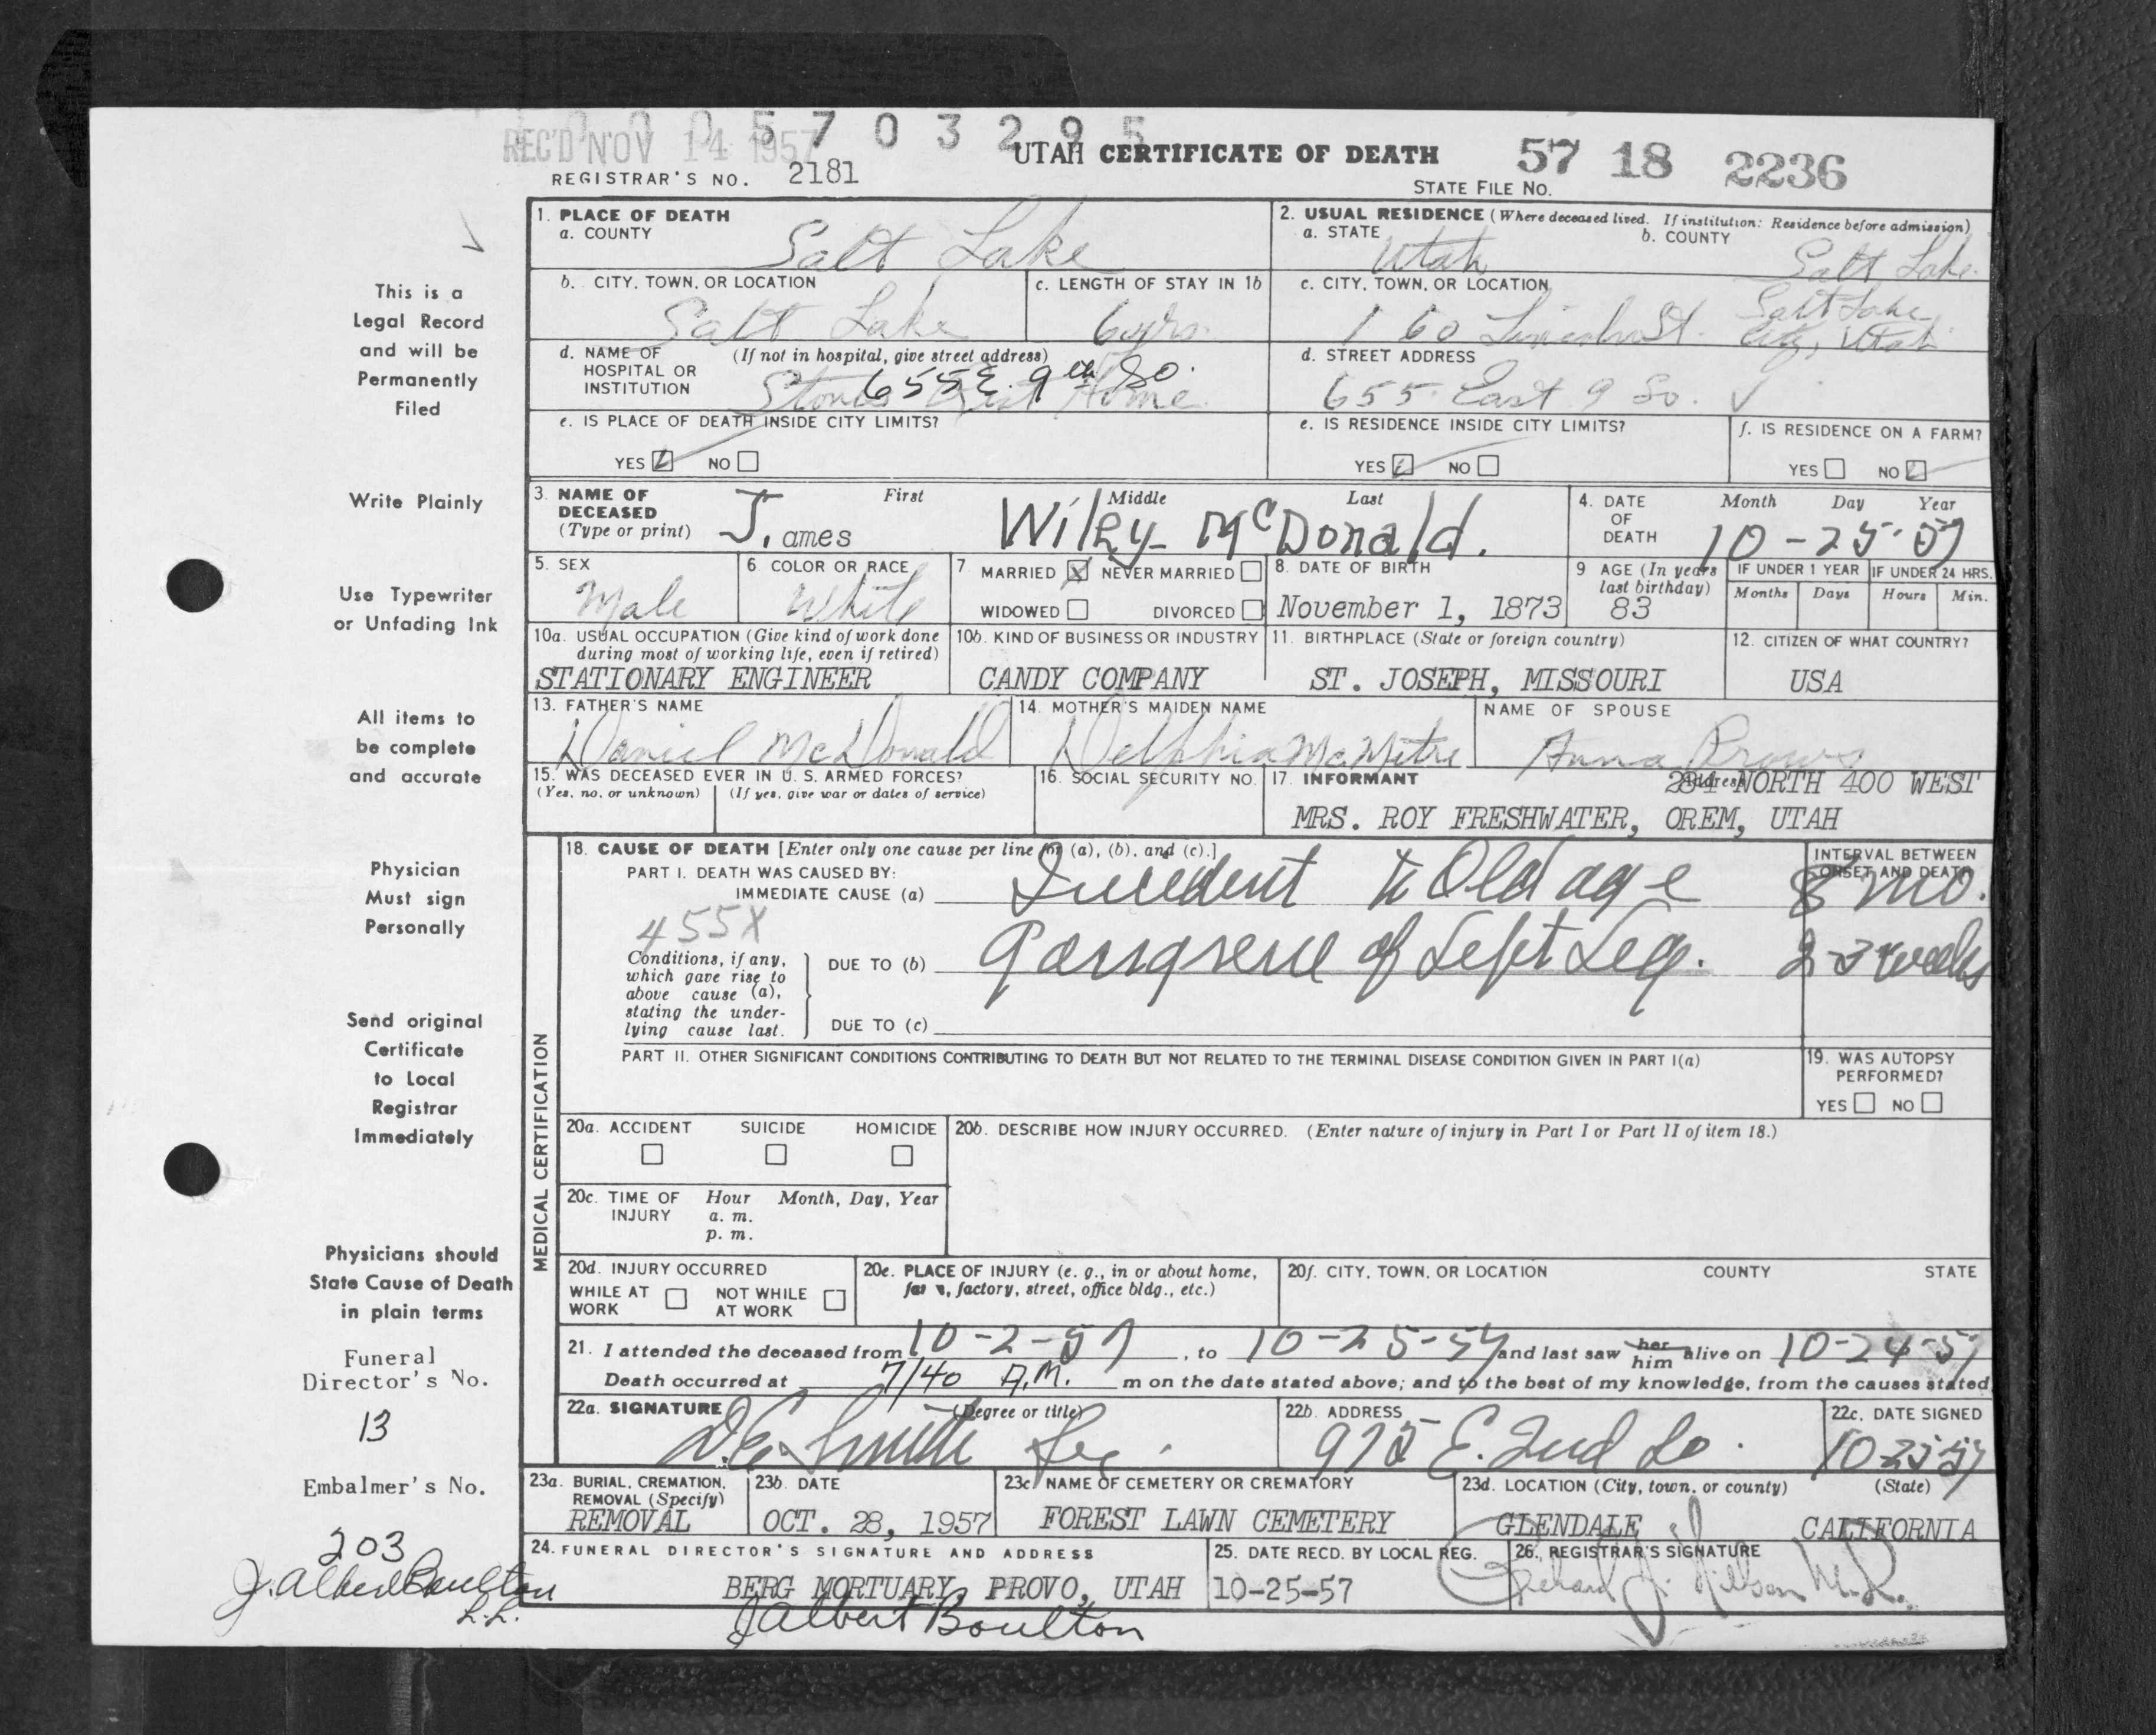 0 0 0 5 7 0 3 2 9 5
REC'D NOV 14 1957
UTAH CERTIFICATE OF DEATH
57 18 2236
REGISTRAR'S NO. 2181
STATE FILE NO.
This is a
Legal Record
and will be
Permanently
Filed
Write Plainly
Use Typewriter
or Unfading Ink
All items to
be complete
and accurate
Physician
Must sign
Personally
Send original
Certificate
to Local
Registrar
Immediately
Physicians should
State Cause of Death
in plain terms
Funeral
Director's No.
13
Embalmer's No.
203
J. Albert Boulton
1. PLACE OF DEATH
a. COUNTY
Salt Lake
2. USUAL RESIDENCE (Where deceased lived. If institution: Residence before admission)
a. STATE
Utah
b. COUNTY
Salt Lake
b. CITY, TOWN, OR LOCATION
Salt Lake
c. LENGTH OF STAY IN 1b
c. CITY, TOWN, OR LOCATION
160 Lincoln St. Salt Lake
City, Utah
d. NAME OF HOSPITAL OR INSTITUTION
(If not in hospital, give street address)
655 E. 9th So.
Rest Home
d. STREET ADDRESS
655 East 9 So.
e. IS PLACE OF DEATH INSIDE CITY LIMITS?
YES NO
e. IS RESIDENCE INSIDE CITY LIMITS?
YES NO
f. IS RESIDENCE ON A FARM?
YES NO
3. NAME OF DECEASED
(Type or print)
First Middle Last
J. ames Wiley McDonald.
4. DATE OF DEATH
Month Day Year
10-25-57
5. SEX
Male
6. COLOR OR RACE
White
7. MARRIED X NEVER MARRIED
WIDOWED DIVORCED
8. DATE OF BIRTH
November 1, 1873
9 AGE (In years last birthday)
83
IF UNDER 1 YEAR
Months Days
IF UNDER 24 HRS.
Hours Min.
10a. USUAL OCCUPATION (Give kind of work done
during most of working life, even if retired)
STATIONARY ENGINEER
10b. KIND OF BUSINESS OR INDUSTRY
CANDY COMPANY
11. BIRTHPLACE (State or foreign country)
ST. JOSEPH, MISSOURI
12. CITIZEN OF WHAT COUNTRY?
USA
13. FATHER'S NAME
Daniel McDonald
14. MOTHER'S MAIDEN NAME
Delphia
NAME OF SPOUSE
Anna
15. WAS DECEASED EVER IN U. S. ARMED FORCES?
(Yes, no, or unknown) (If yes, give war or dates of service)
16. SOCIAL SECURITY NO.
17. INFORMANT Address
284 NORTH 400 WEST
MRS. ROY FRESHWATER, OREM, UTAH
MEDICAL CERTIFICATION
18. CAUSE OF DEATH [Enter only one cause per line for (a), (b), and (c).]
INTERVAL BETWEEN
ONSET AND DEATH
PART I. DEATH WAS CAUSED BY:
IMMEDIATE CAUSE (a) to Old age 8 mo.
455X
Conditions, if any,
which gave rise to
above cause (a),
stating the under-
lying cause last.
DUE TO (b) Gangrene of Left Leg. 2-3 weeks
DUE TO (c)
PART II. OTHER SIGNIFICANT CONDITIONS CONTRIBUTING TO DEATH BUT NOT RELATED TO THE TERMINAL DISEASE CONDITION GIVEN IN PART I(a)
19. WAS AUTOPSY
PERFORMED?
YES NO
20a. ACCIDENT SUICIDE HOMICIDE
20b. DESCRIBE HOW INJURY OCCURRED. (Enter nature of injury in Part I or Part II of item 18.)
20c. TIME OF INJURY
Hour Month, Day, Year
a. m.
p. m.
20d. INJURY OCCURRED
WHILE AT WORK
NOT WHILE AT WORK
20e. PLACE OF INJURY (e. g., in or about home,
farm, factory, street, office bldg., etc.)
20f. CITY, TOWN, OR LOCATION COUNTY STATE
21. I attended the deceased from 10-2-57, to 10-25-57 and last saw her him alive on 10-24-57
Death occurred at 7/40 A.M. m on the date stated above; and to the best of my knowledge, from the causes stated
22a. SIGNATURE (Degree or title)
D.E. Smith
22b. ADDRESS
975 E. 2nd So.
22c. DATE SIGNED
10-25-57
23a. BURIAL, CREMATION,
REMOVAL (Specify)
REMOVAL
23b. DATE
OCT. 28, 1957
23c. NAME OF CEMETERY OR CREMATORY
FOREST LAWN CEMETERY
23d. LOCATION (City, town, or county) (State)
GLENDALE CALIFORNIA
24. FUNERAL DIRECTOR'S SIGNATURE AND ADDRESS
BERG MORTUARY, PROVO, UTAH
J Albert Boulton
25. DATE RECD. BY LOCAL REG.
10-25-57
26. REGISTRAR'S SIGNATURE